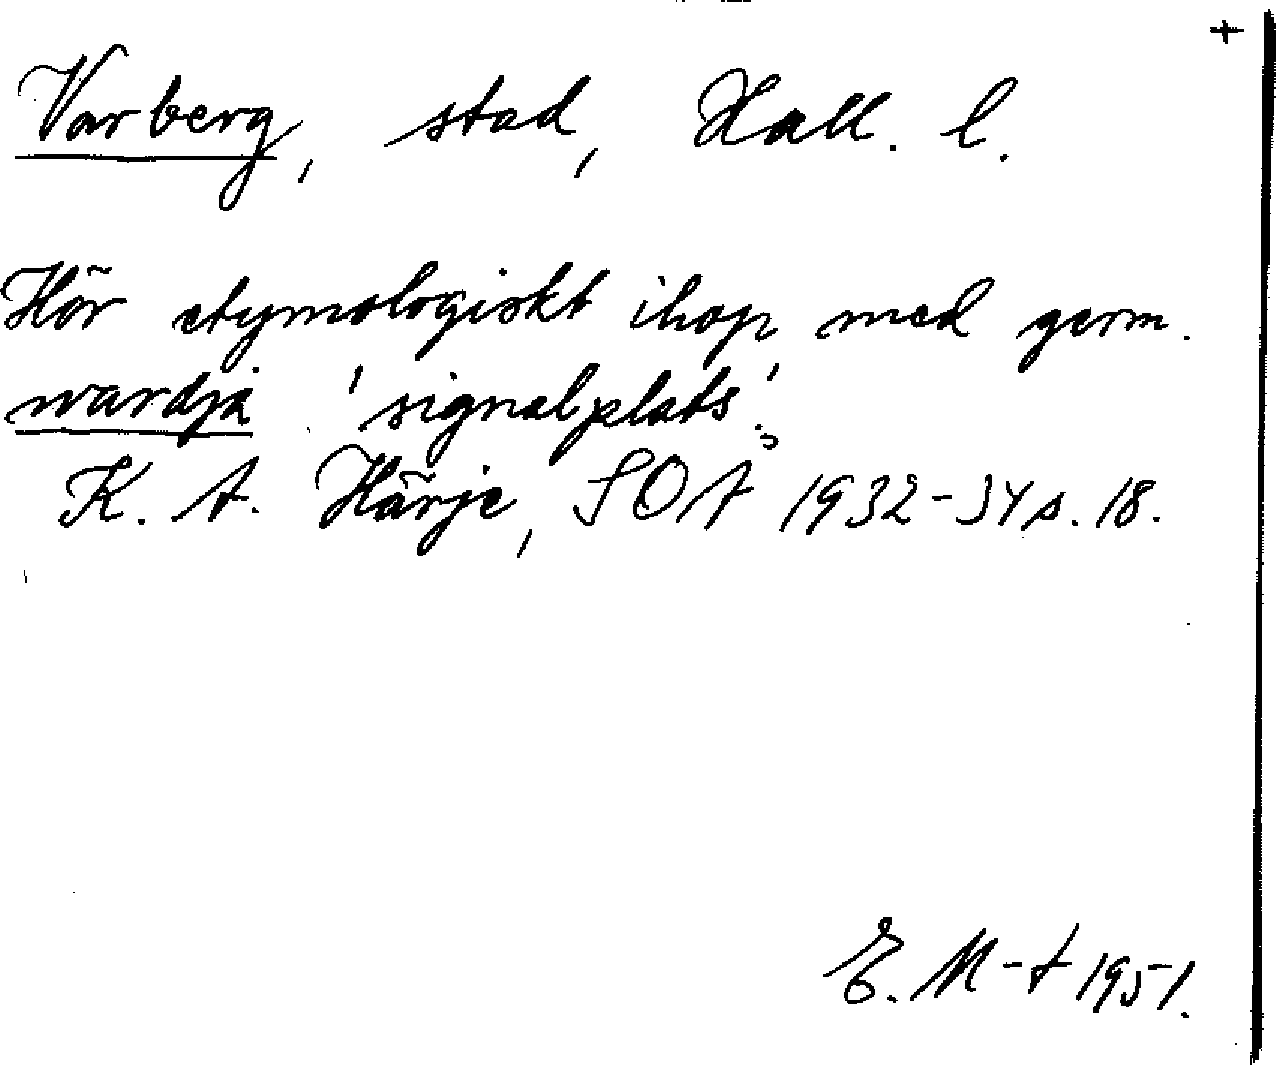 +
Varberg, stad, Hall. l.
Hör etymologiskt ihop med germ.
wardja 'signalplats';
K. A. Härje, SOÅ 1932-34 s. 18.
E. M-t 1951.